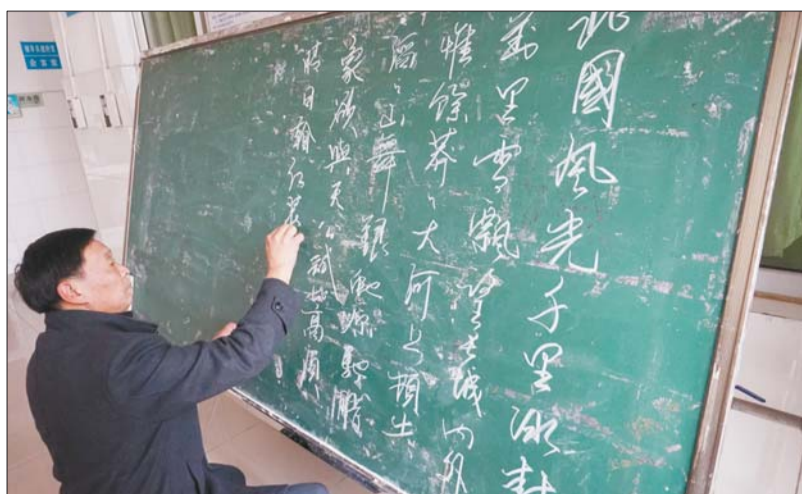 北國風光千里冰封
萬里雪飄望长城内外
惟餘莽々大河上頓失
滔々山舞銀蛇原馳臘
象欲與天公試比高須
晴日看红装